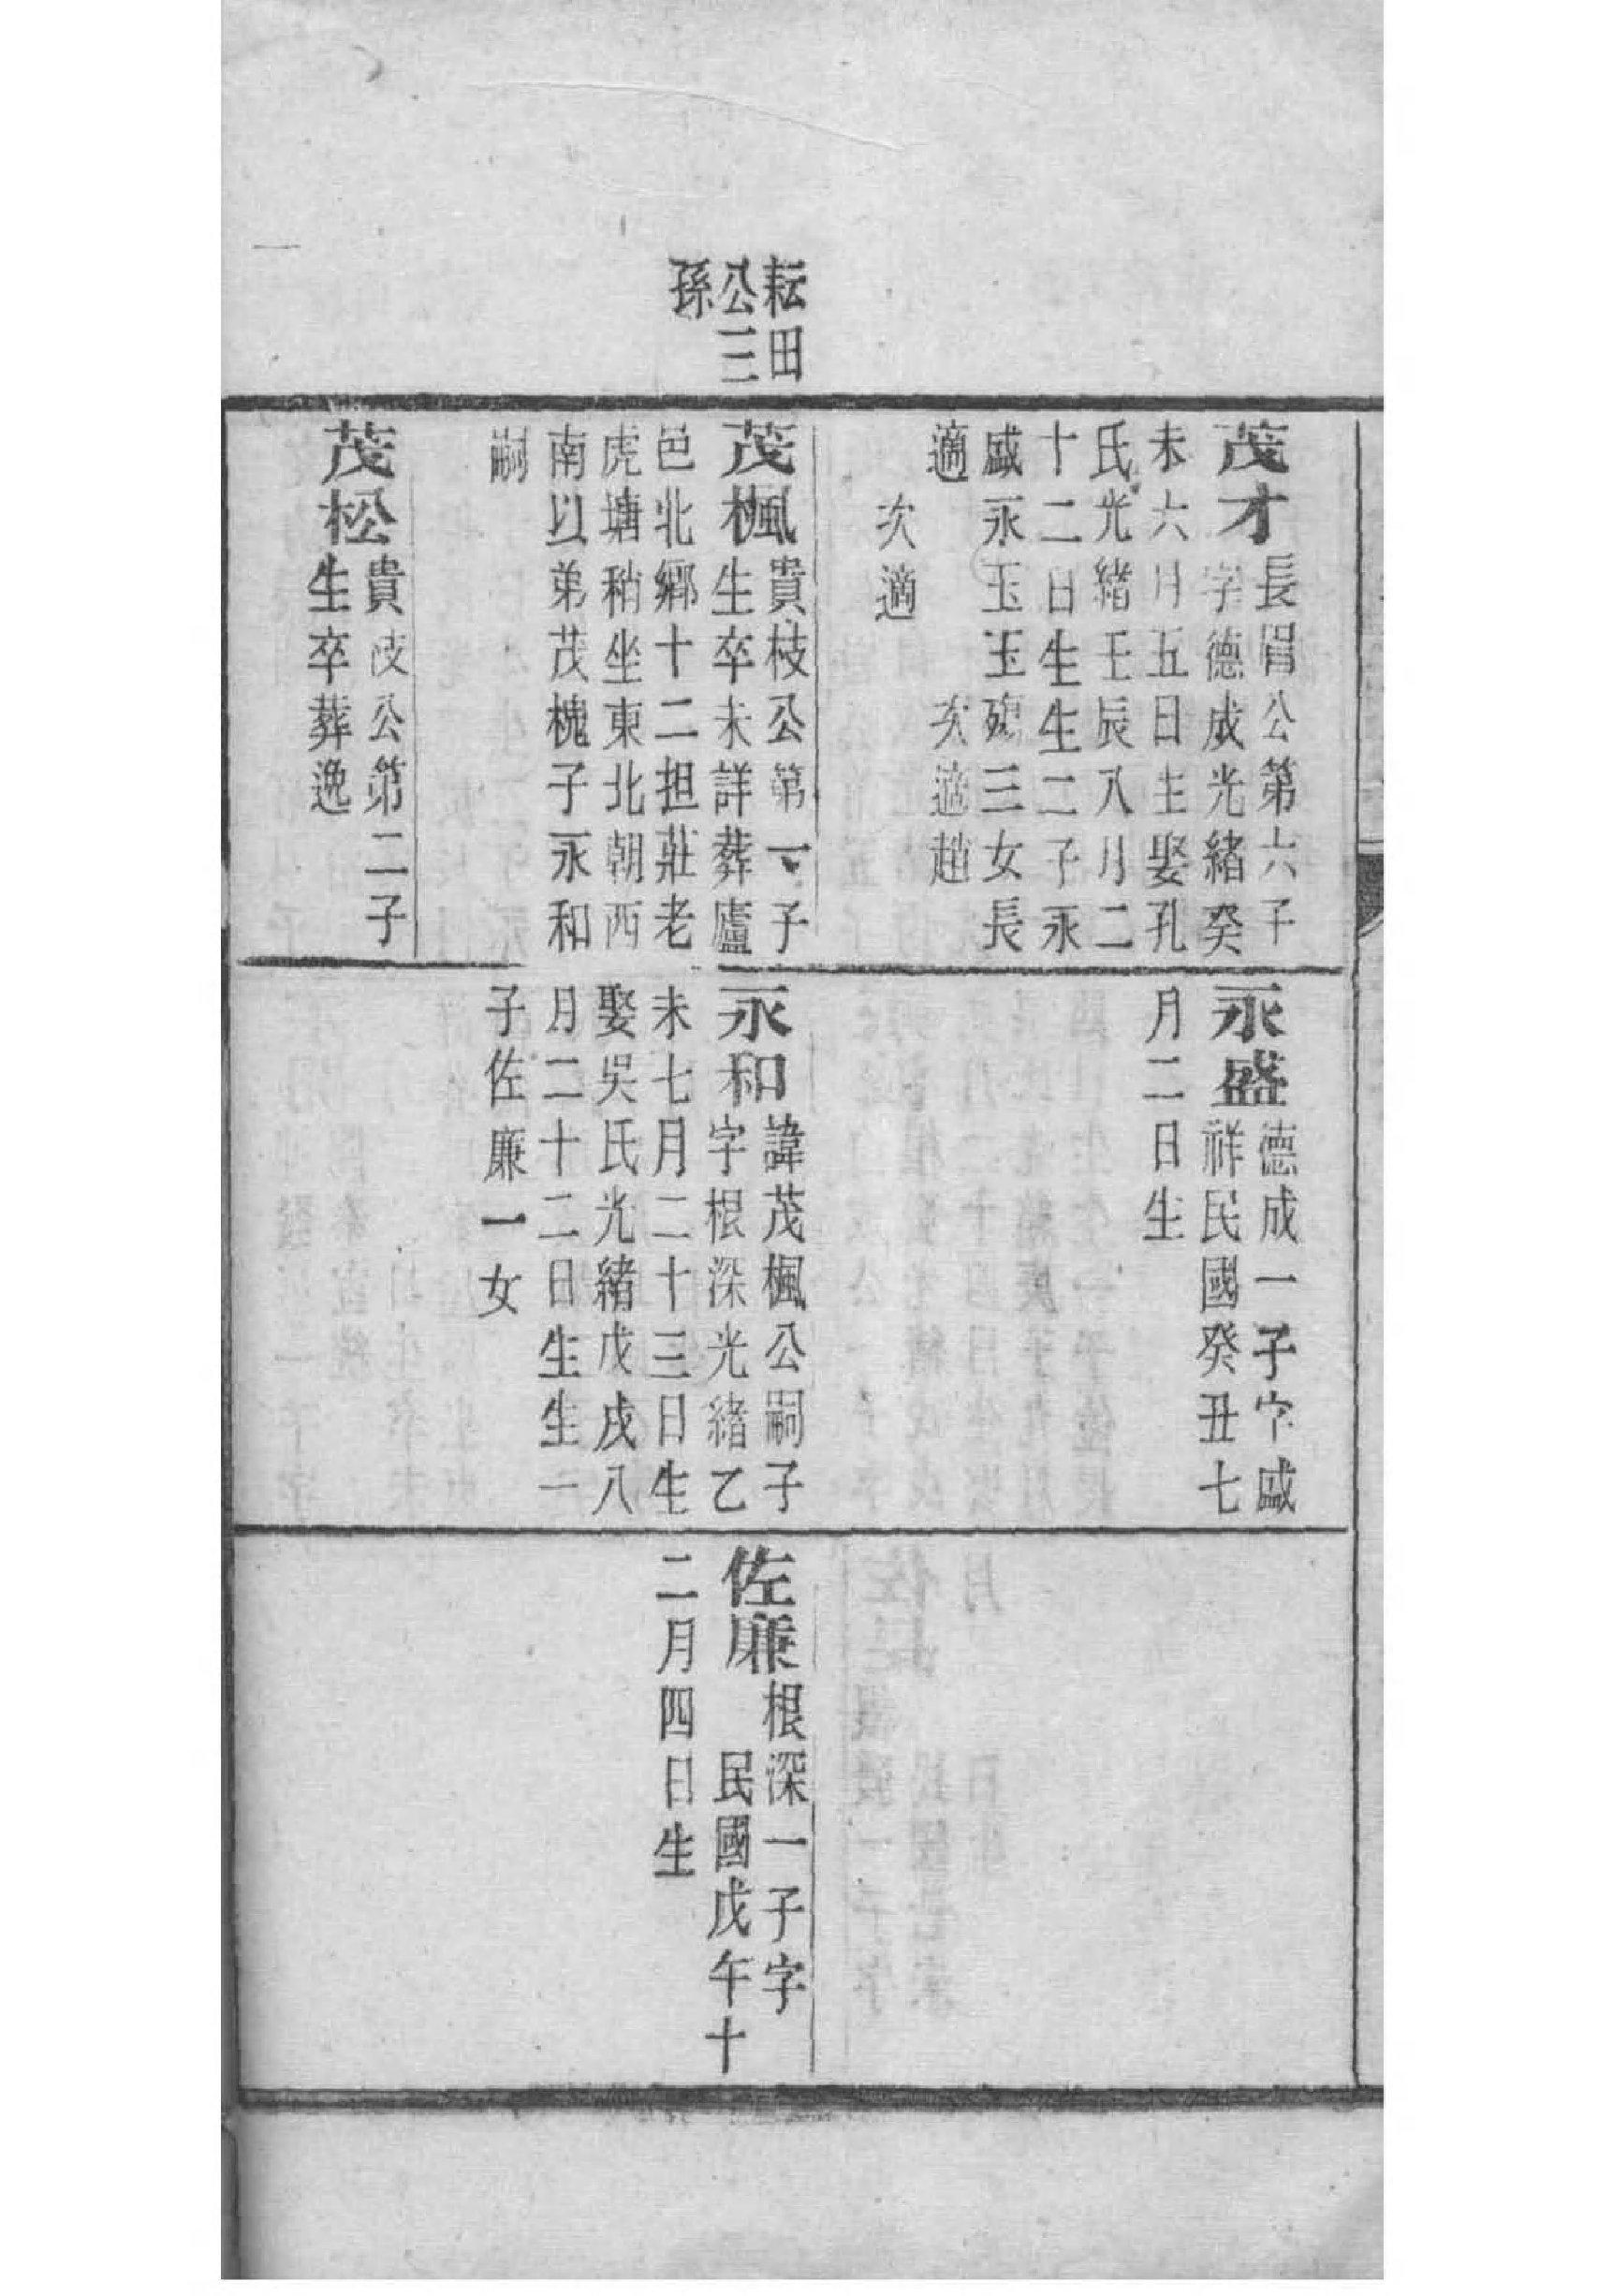 耘田
公三
孫
茂才
長眉公第六子
字德成光緒癸
未六月五日生娶孔
氏光緒壬辰八月二
十二日生生二子永
盛永玉玉殤三女長
適　　　次適趙
次適
茂楓
貴枝公第一子
生卒未詳葬廬
邑北鄉十二担莊老
虎塘稍坐東北朝西
南以弟茂槐子永和
嗣
茂松
貴枝公第二子
生卒葬逸
永盛
德成一子字盛
祥民國癸丑七
月二日生
永和
諱茂楓公嗣子
字根深光緒乙
未七月二十三日生
娶吳氏光緒戊戌八
月二十二日生生一
子佐廉一女
佐廉
根深一子字
民國戊午十
二月四日生